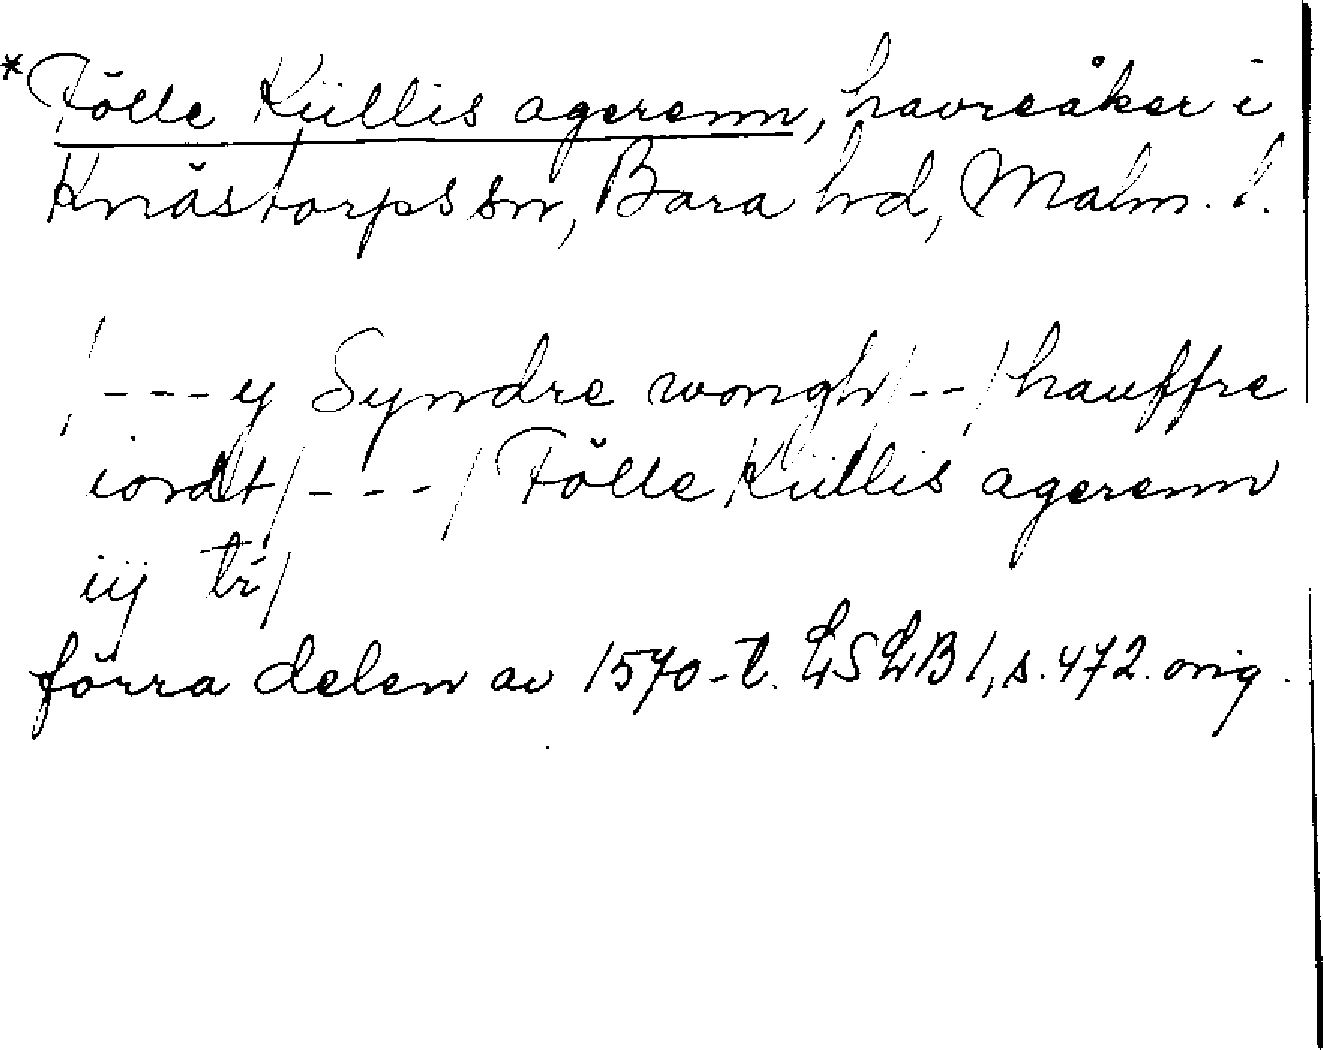 *Fölle Küllis agerenn, havreåker i
Knästorps sn, Bara hd, Malm. l.
/---y Syndre wongh/--/hauffre
iordt/---/Fölle Küllis agerenn
iij tr/
förra delen av 1570-t. LSLB 1, s. 472. orig.